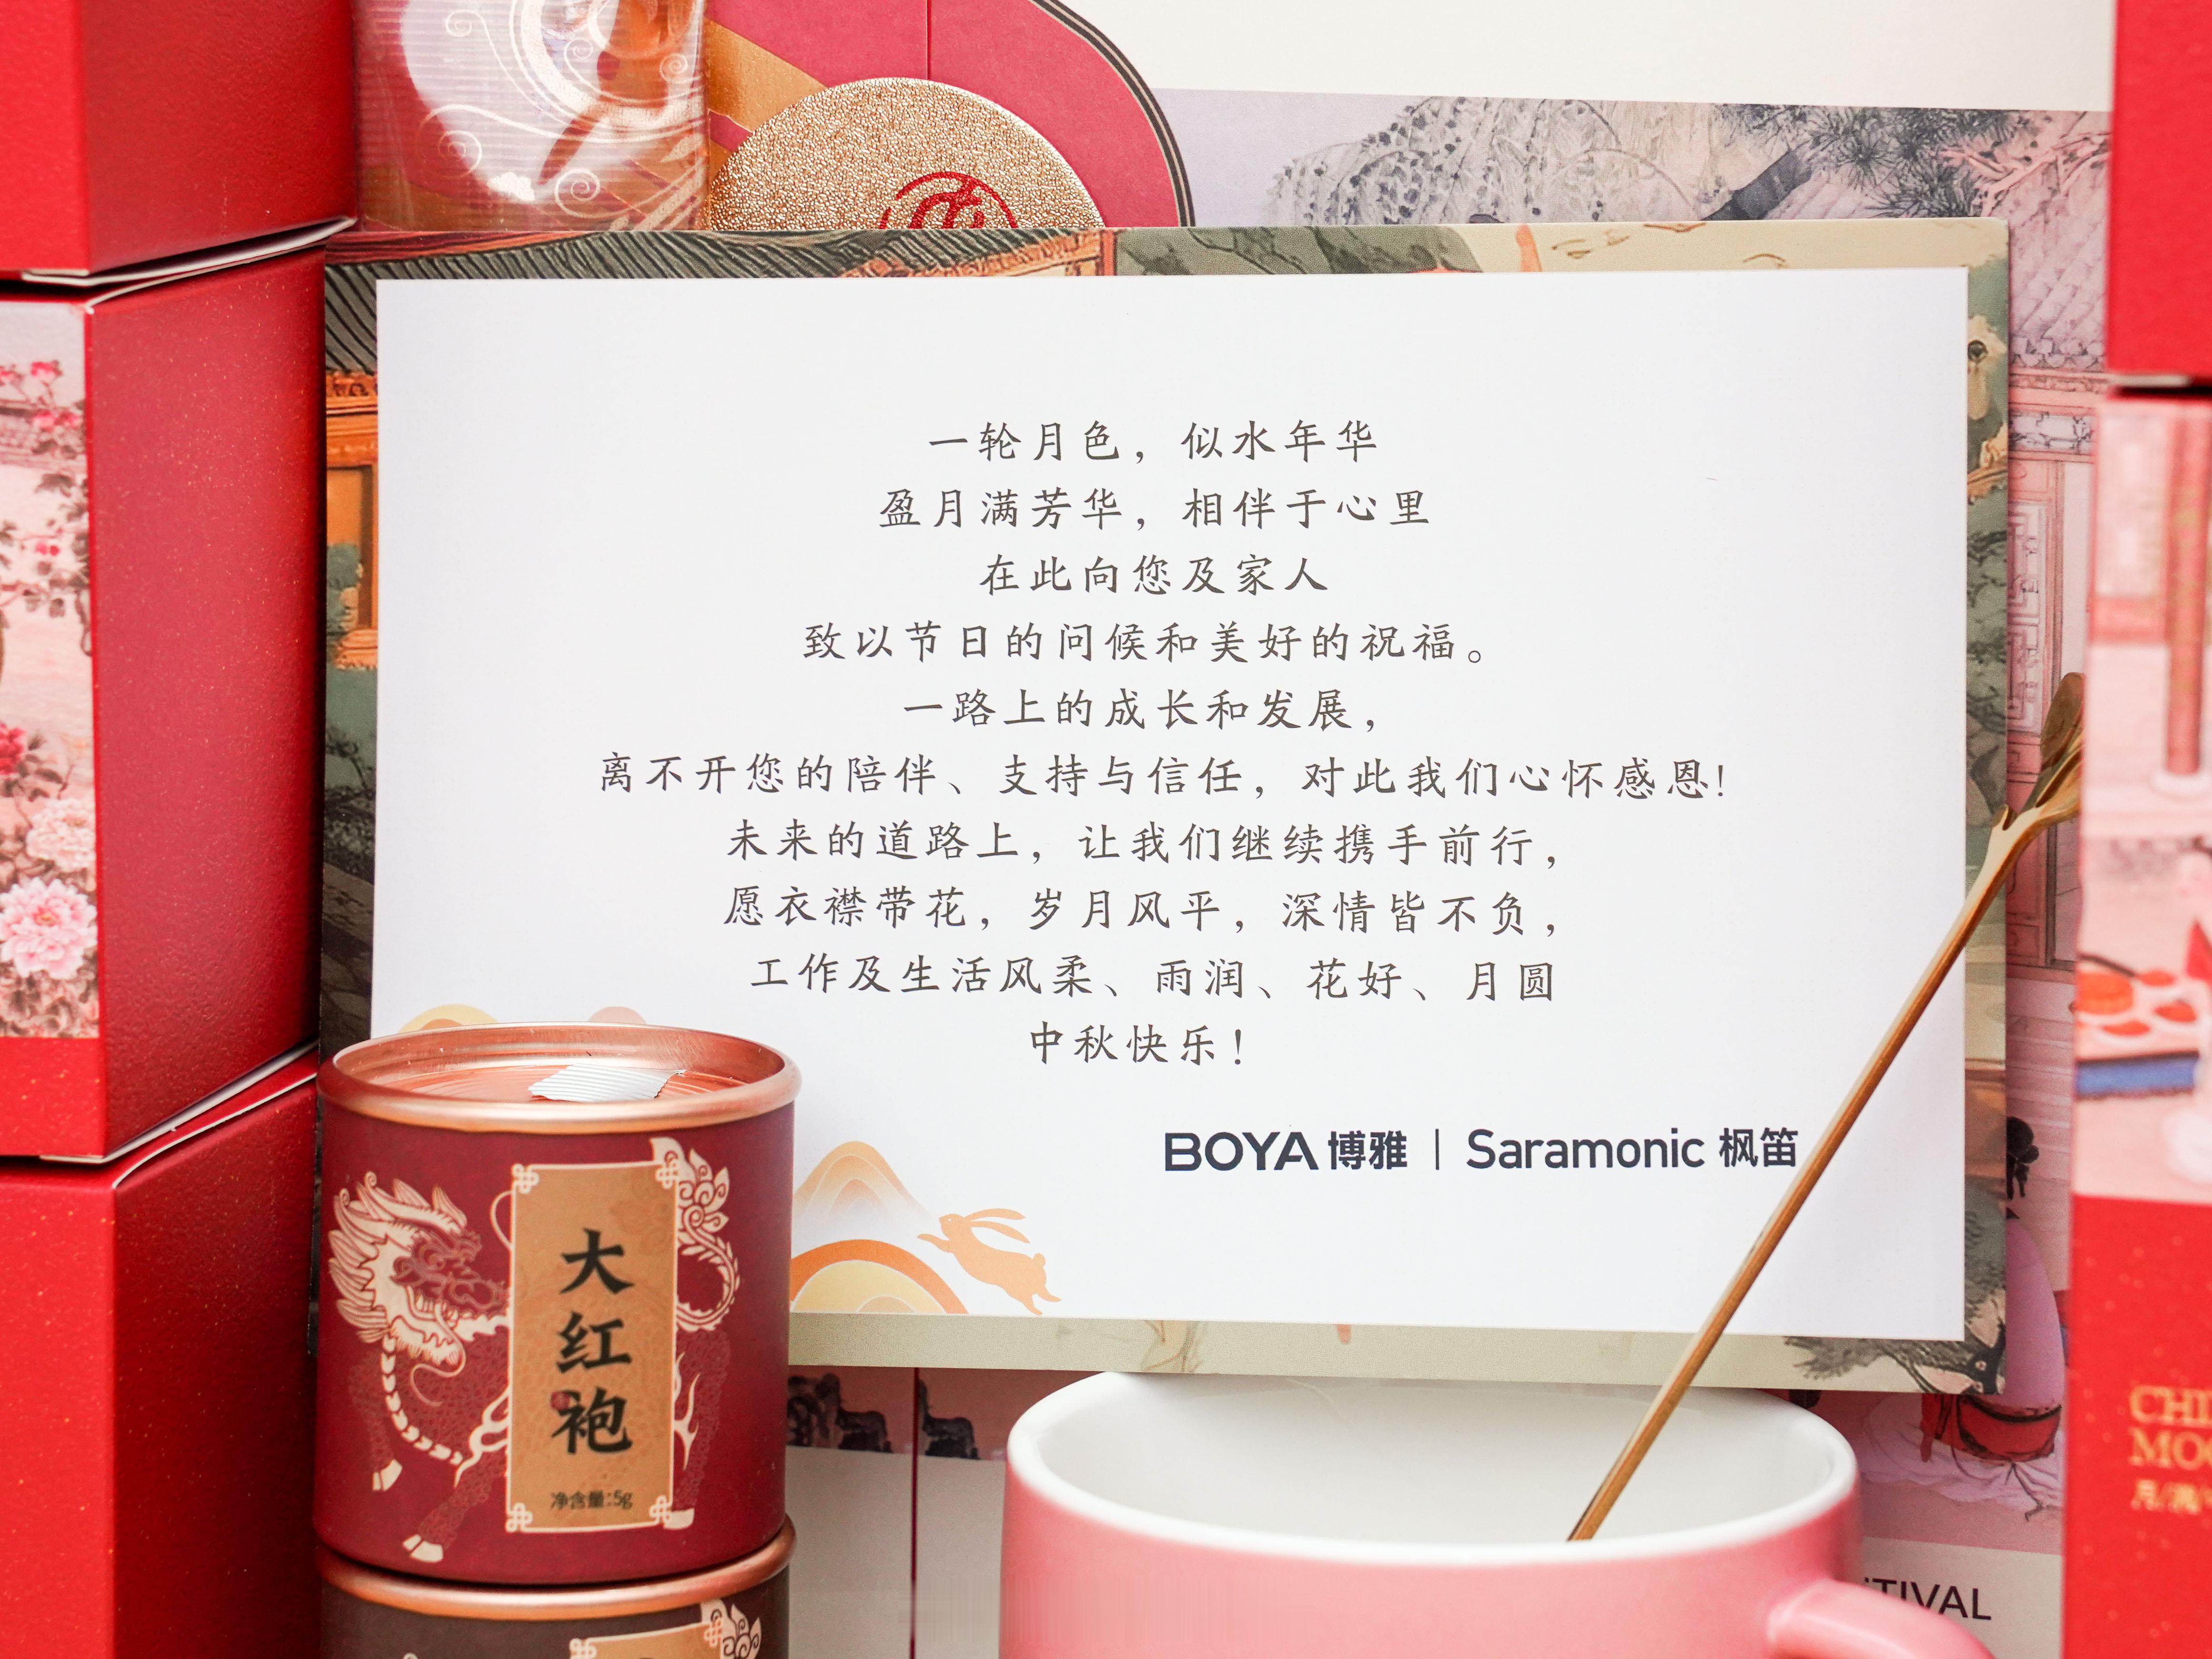 一轮月色，似水年华
盈月满芳华，相伴于心里
在此向您及家人
致以节日的问候和美好的祝福。
一路上的成长和发展，
离不开您的陪伴、支持与信任，对此我们心怀感恩!
未来的道路上，让我们继续携手前行，
愿衣襟带花，岁月风平，深情皆不负，
工作及生活风柔、雨润、花好、月圆
中秋快乐!
BOYA 博雅 | Saramonic 枫笛
大红袍
净含量:5g
CHI
MO
TIVAL